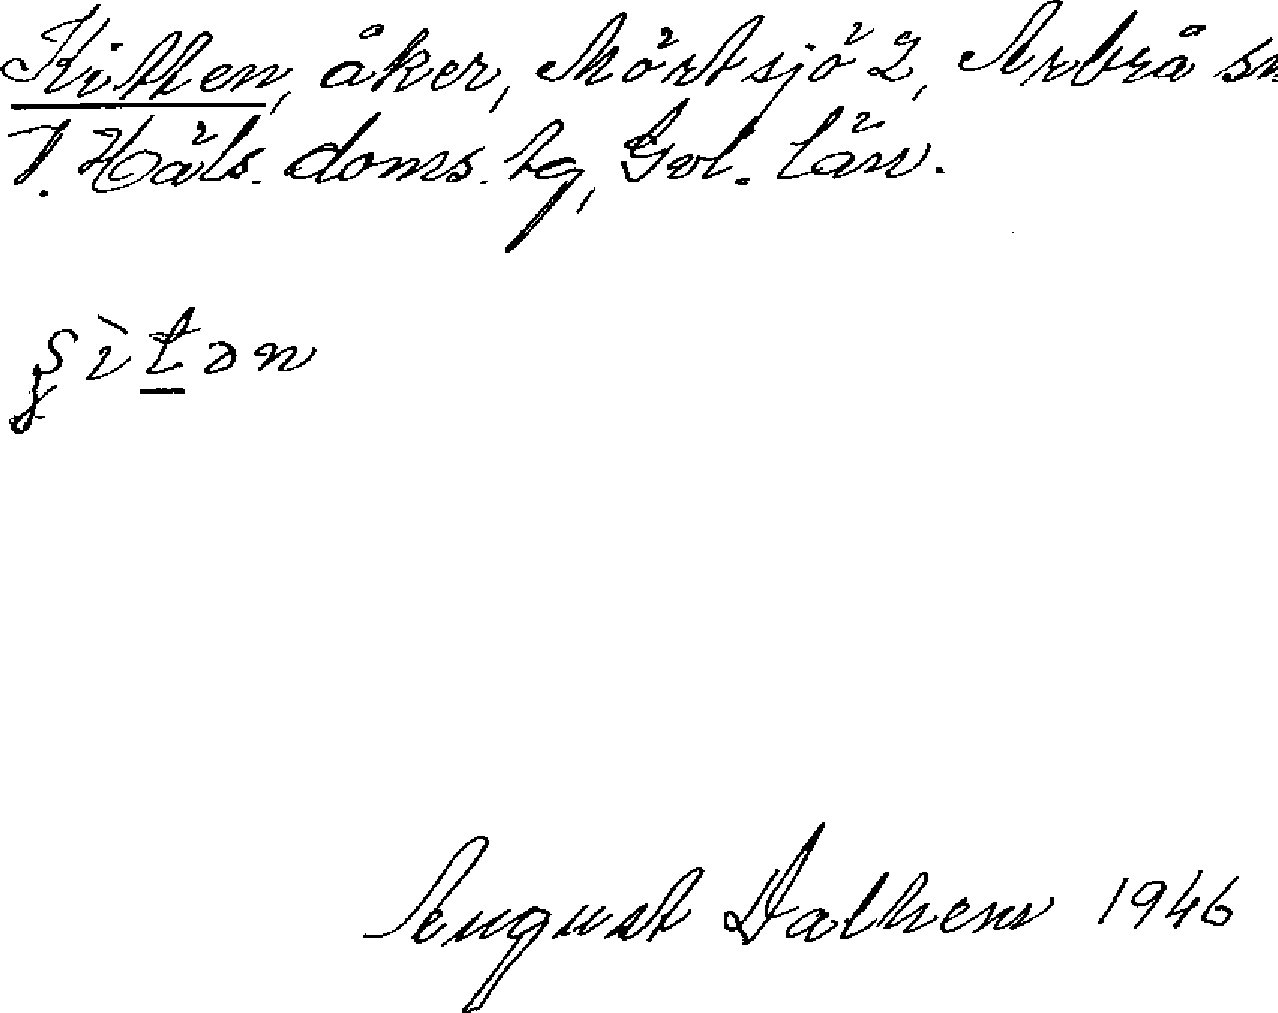 Kitten, åker, Mörtsjö 2, Arbrå sn
V. Häls. doms. hg, Gvl. län.
ʂìtən
August Dalhem 1946